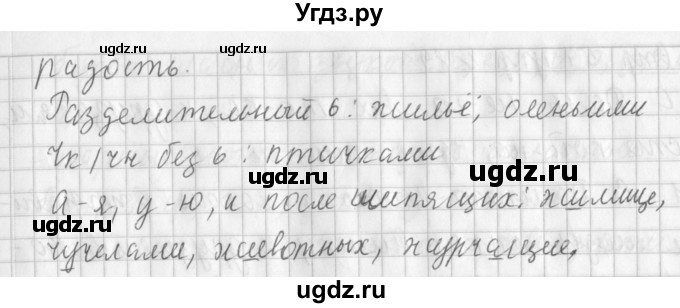 Угдз.ру
ugdz.ru ugdz.ru
радость.
Разделительный ь: жильё, оленьими
ugdz.ru
Чк/чн без ь: птичками
ugdz.ru ugdz.ru
А-я, у-ю, и после шипящих: жилище,
ugdz.ru
чучелами, животных, журчащие,
ugdz.ru ugdz.ru